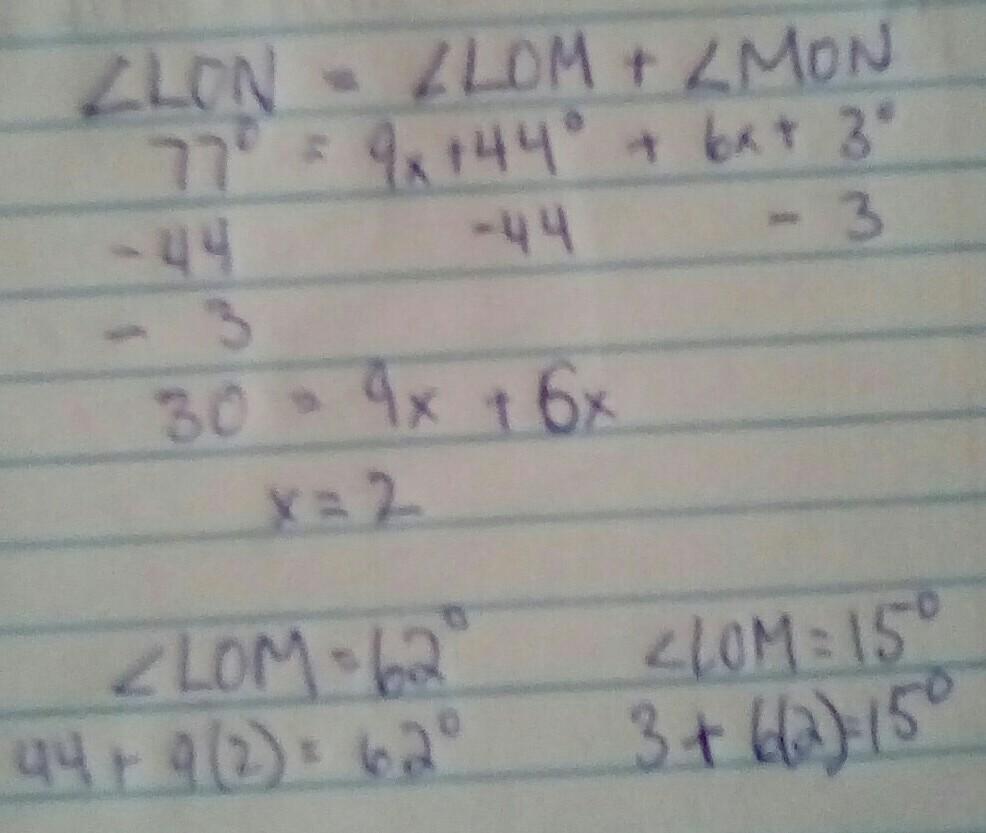 ∠LON = ∠LOM + ∠MON
77° = 9x+44° + 6x+ 3°
-44 -44 - 3
- 3
30 = 9x + 6x
x=2
∠LOM=62° ∠LOM=15°
44+ 9(2)= 62° 3+ 6(2)=15°